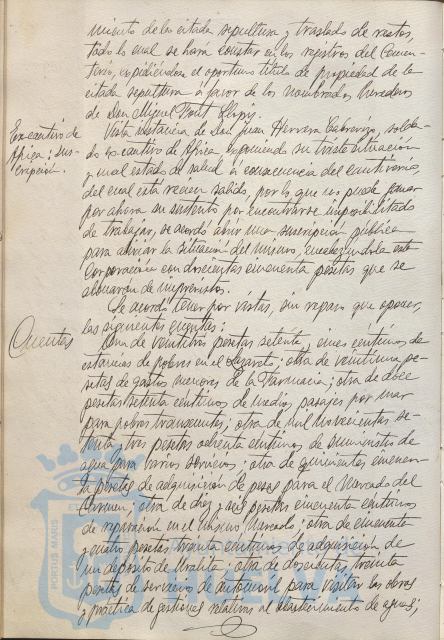 miento de la citada sepultura y traslado de restos,
todo lo cual se hará constar en los registros del Cemen-
terio, expidiéndose el oportuno título de propiedad de la
citada sepultura a favor de los nombrados herederos
de Don Miguel
Ex-cautivo de
Africa: sus-
cripción.
Vista instancia de Don Juan Herrera Cabrerizo, solda-
do ex cautivo de Africa exponiendo su triste situación
y mal estado de salud a consecuencia del cautiverio,
del cual está recien salido, por lo que no puede ganar
por ahora su sustento por encontrarse imposibilitado
de trabajar, se acordó abrir una suscripción pública
para aliviar la situación del mismo, encabezándola esta
Corporación con doscientas cincuenta pesetas que se
abonarán de imprevistos.
Se acordó tener por vistas, sin reparo que oponer,
las siguientes cuentas:
Cuentas
Una de veintitres pesetas setenta y cinco céntimos de
estancias de pobres en el Lazareto; otra de veintiuna pe-
setas de gastos menores de la Farmacia; otra de doce
pesetas setenta céntimos de medios pasajes por mar
para pobres transeuntes; otra de mil novecientas se-
tenta y tres pesetas ochenta céntimos de suministro de
agua para varios servicios; otra de quinientas cincuen-
ta pesetas de adquisición de pesas para el Mercado del
Carmen; otra de diez y seis pesetas cincuenta céntimos
de reparación en el mismo Mercado; otra de cincuenta
y cuatro pesetas treinta céntimos de adquisición de
un depósito de Uralita; otra de doscientas treinta
pesetas de servicios de automovil para visitar las obras
y práctica de gestiones relativas al abastecimiento de aguas;
PORTUS MARIS